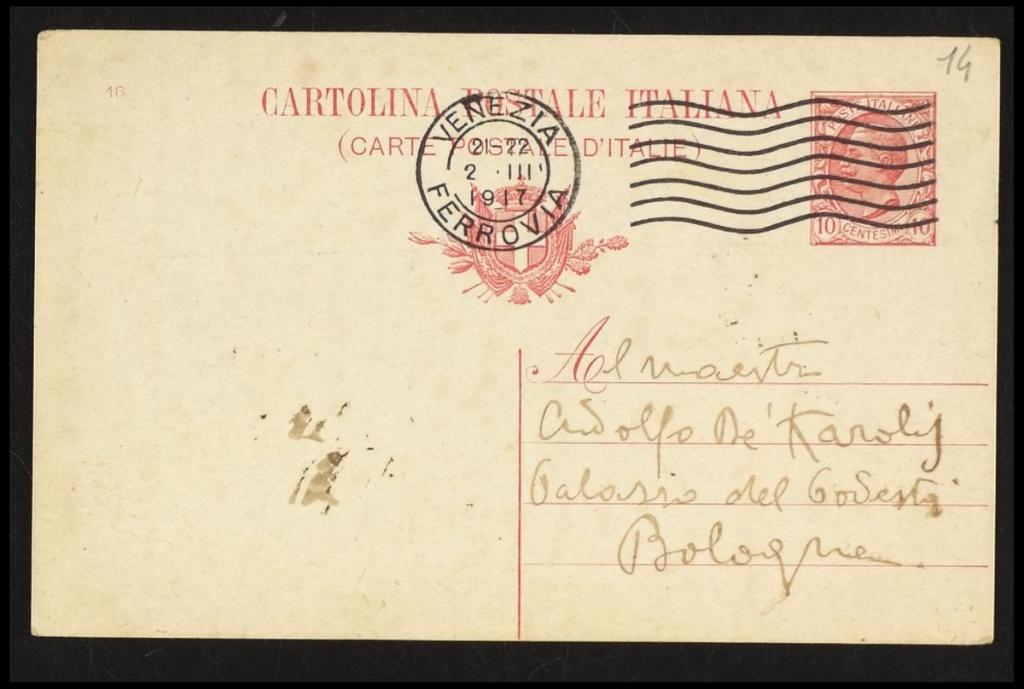 14
16
CARTOLINA POSTALE ITALIANA
(CARTE POSTALE D'ITALIE)
VENEZIA
21-22
2 · III
1917
FERROVIA
POSTE ITALIANE
10 CENTESIMI 10
Al maestro
Adolfo De' Karolis
Palazzo del Podestà
Bologna